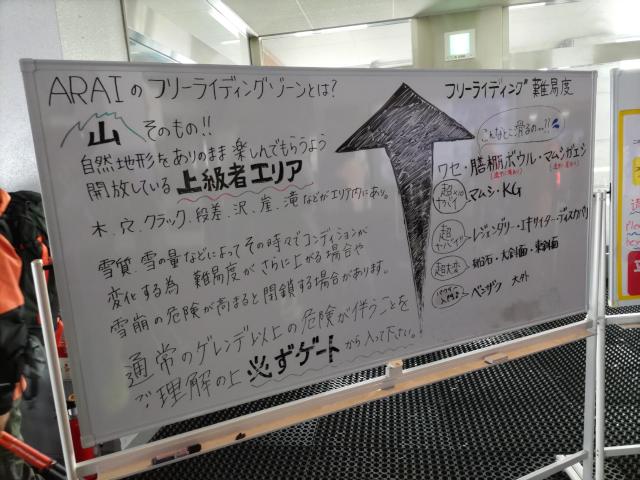 ARAIのフリーライディングゾーンとは?
山 そのもの!!
自然地形をありのまま楽しんでもらうよう
開放している 上級者エリア
木、穴、クラック、段差、沢、崖、滝などがエリア内にあり。
雪質、雪の量などによってその時々でコンディションが
変化する為 難易度がさらに上がる場合や
雪崩の危険が高まると閉鎖する場合があります。
通常のゲレンデ以上の危険が伴うことを
ご理解の上 必ずゲートから入って下さい。
フリーライディング難易度
こんなとこ滑るの…!!
ワセ・膳棚ボウル・マムシガエシ
超×∞ ヤバイ
マムシ・KG
超ヤバイ
レジェンダリー・エキサイター・ディスカバリ
超大変
大斜面・東斜面
パウダー入門
大外